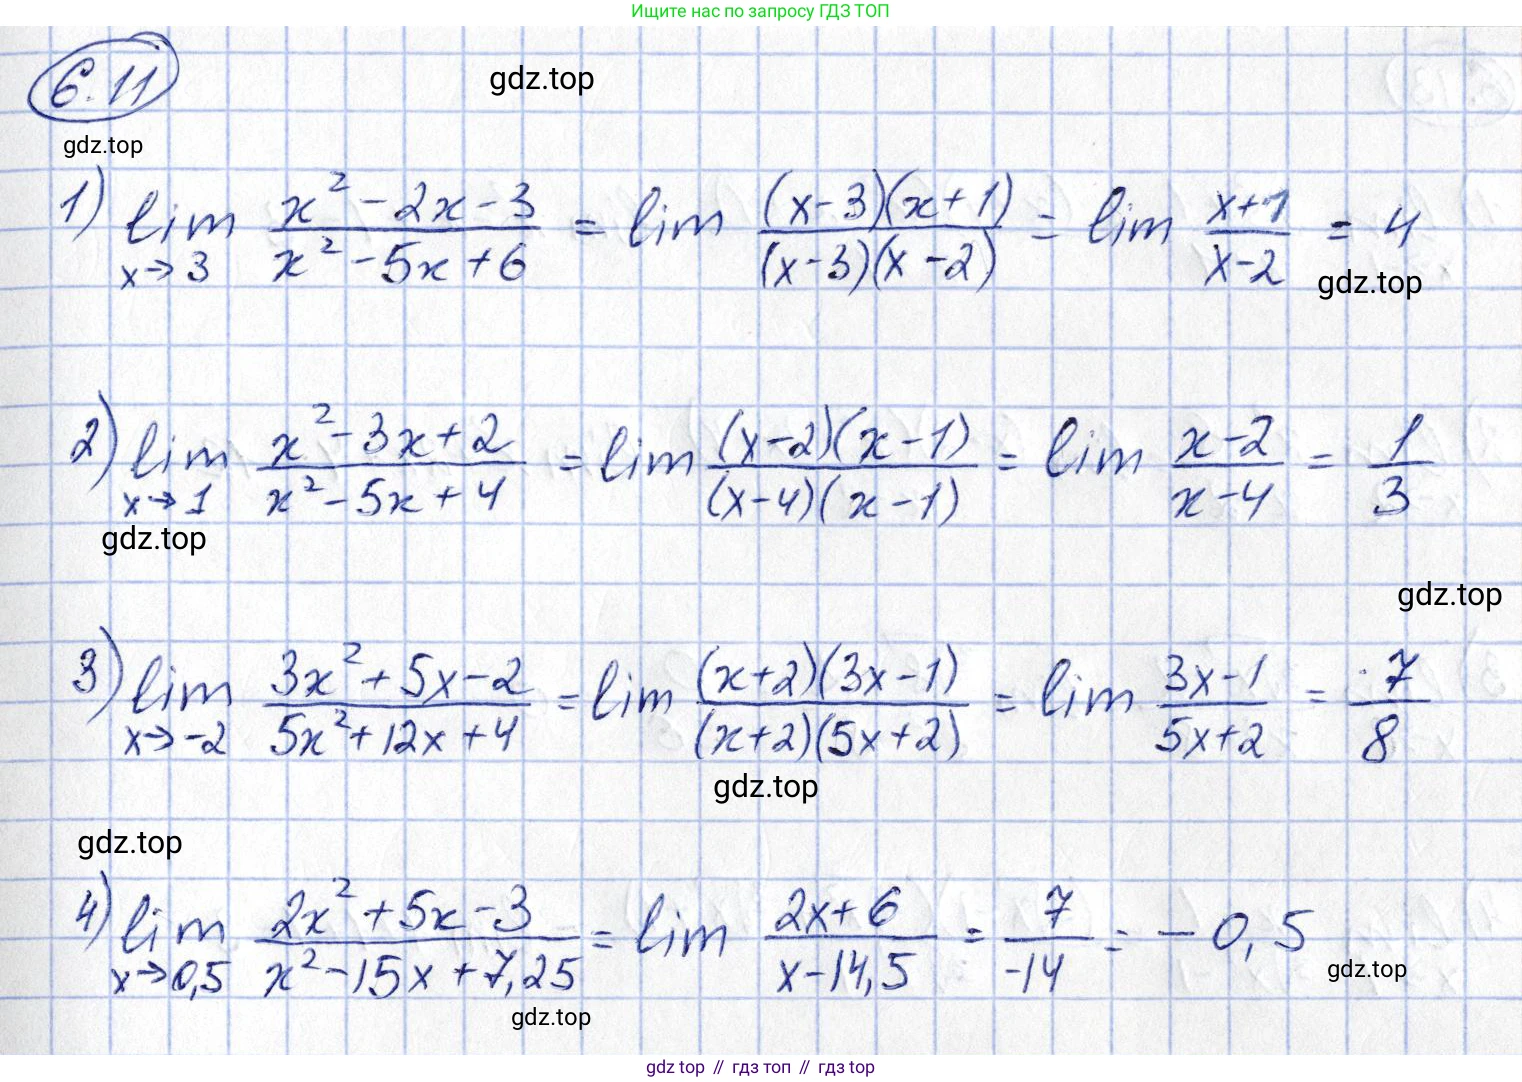 Ищите нас по запросу ГДЗ ТОП
6.11
gdz.top
gdz.top
1) lim x→3 (x² - 2x - 3)/(x² - 5x + 6) = lim ((x-3)(x+1))/((x-3)(x-2)) = lim (x+1)/(x-2) = 4
gdz.top
2) lim x→1 (x² - 3x + 2)/(x² - 5x + 4) = lim ((x-2)(x-1))/((x-4)(x-1)) = lim (x-2)/(x-4) = 1/3
gdz.top
gdz.top
3) lim x→-2 (3x² + 5x - 2)/(5x² + 12x + 4) = lim ((x+2)(3x-1))/((x+2)(5x+2)) = lim (3x-1)/(5x+2) = 7/8
gdz.top
gdz.top
4) lim x→0,5 (2x² + 5x - 3)/(x² - 15x + 7,25) = lim (2x+6)/(x-14,5) = 7/-14 = -0,5
gdz.top
gdz.top
gdz top // гдз топ // gdz top